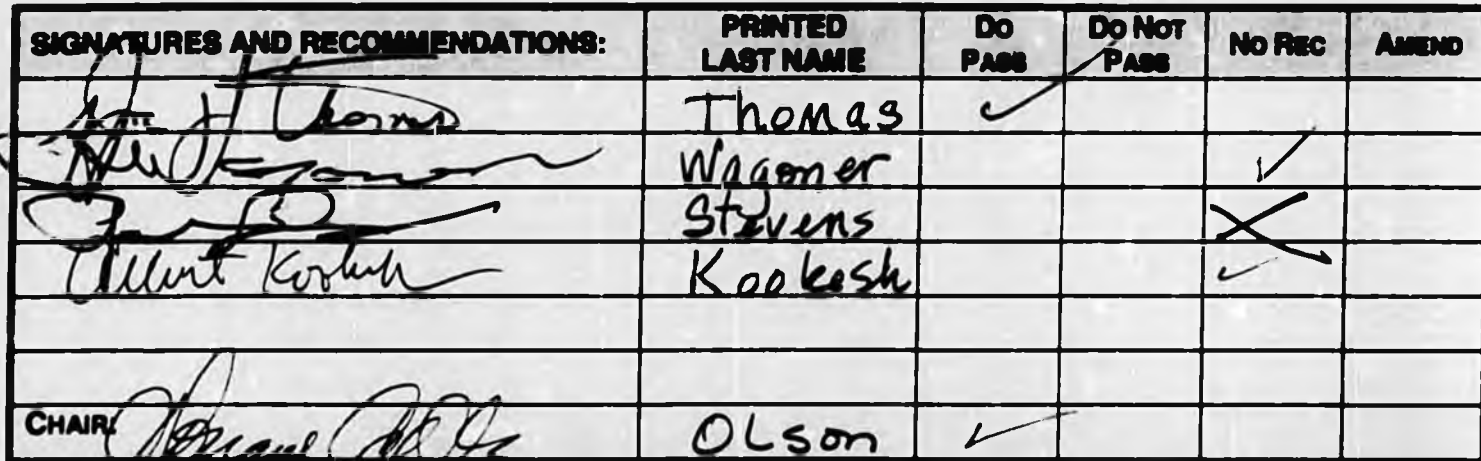 SIGNATURES AND RECOMMENDATIONS: PRINTED LAST NAME DO PASS DO NOT PASS NO REC AMEND
Thomas Thomas ✓
Wagoner ✓
Stevens X
Albert Kookesh Kookesh ✓
CHAIR: OLson ✓